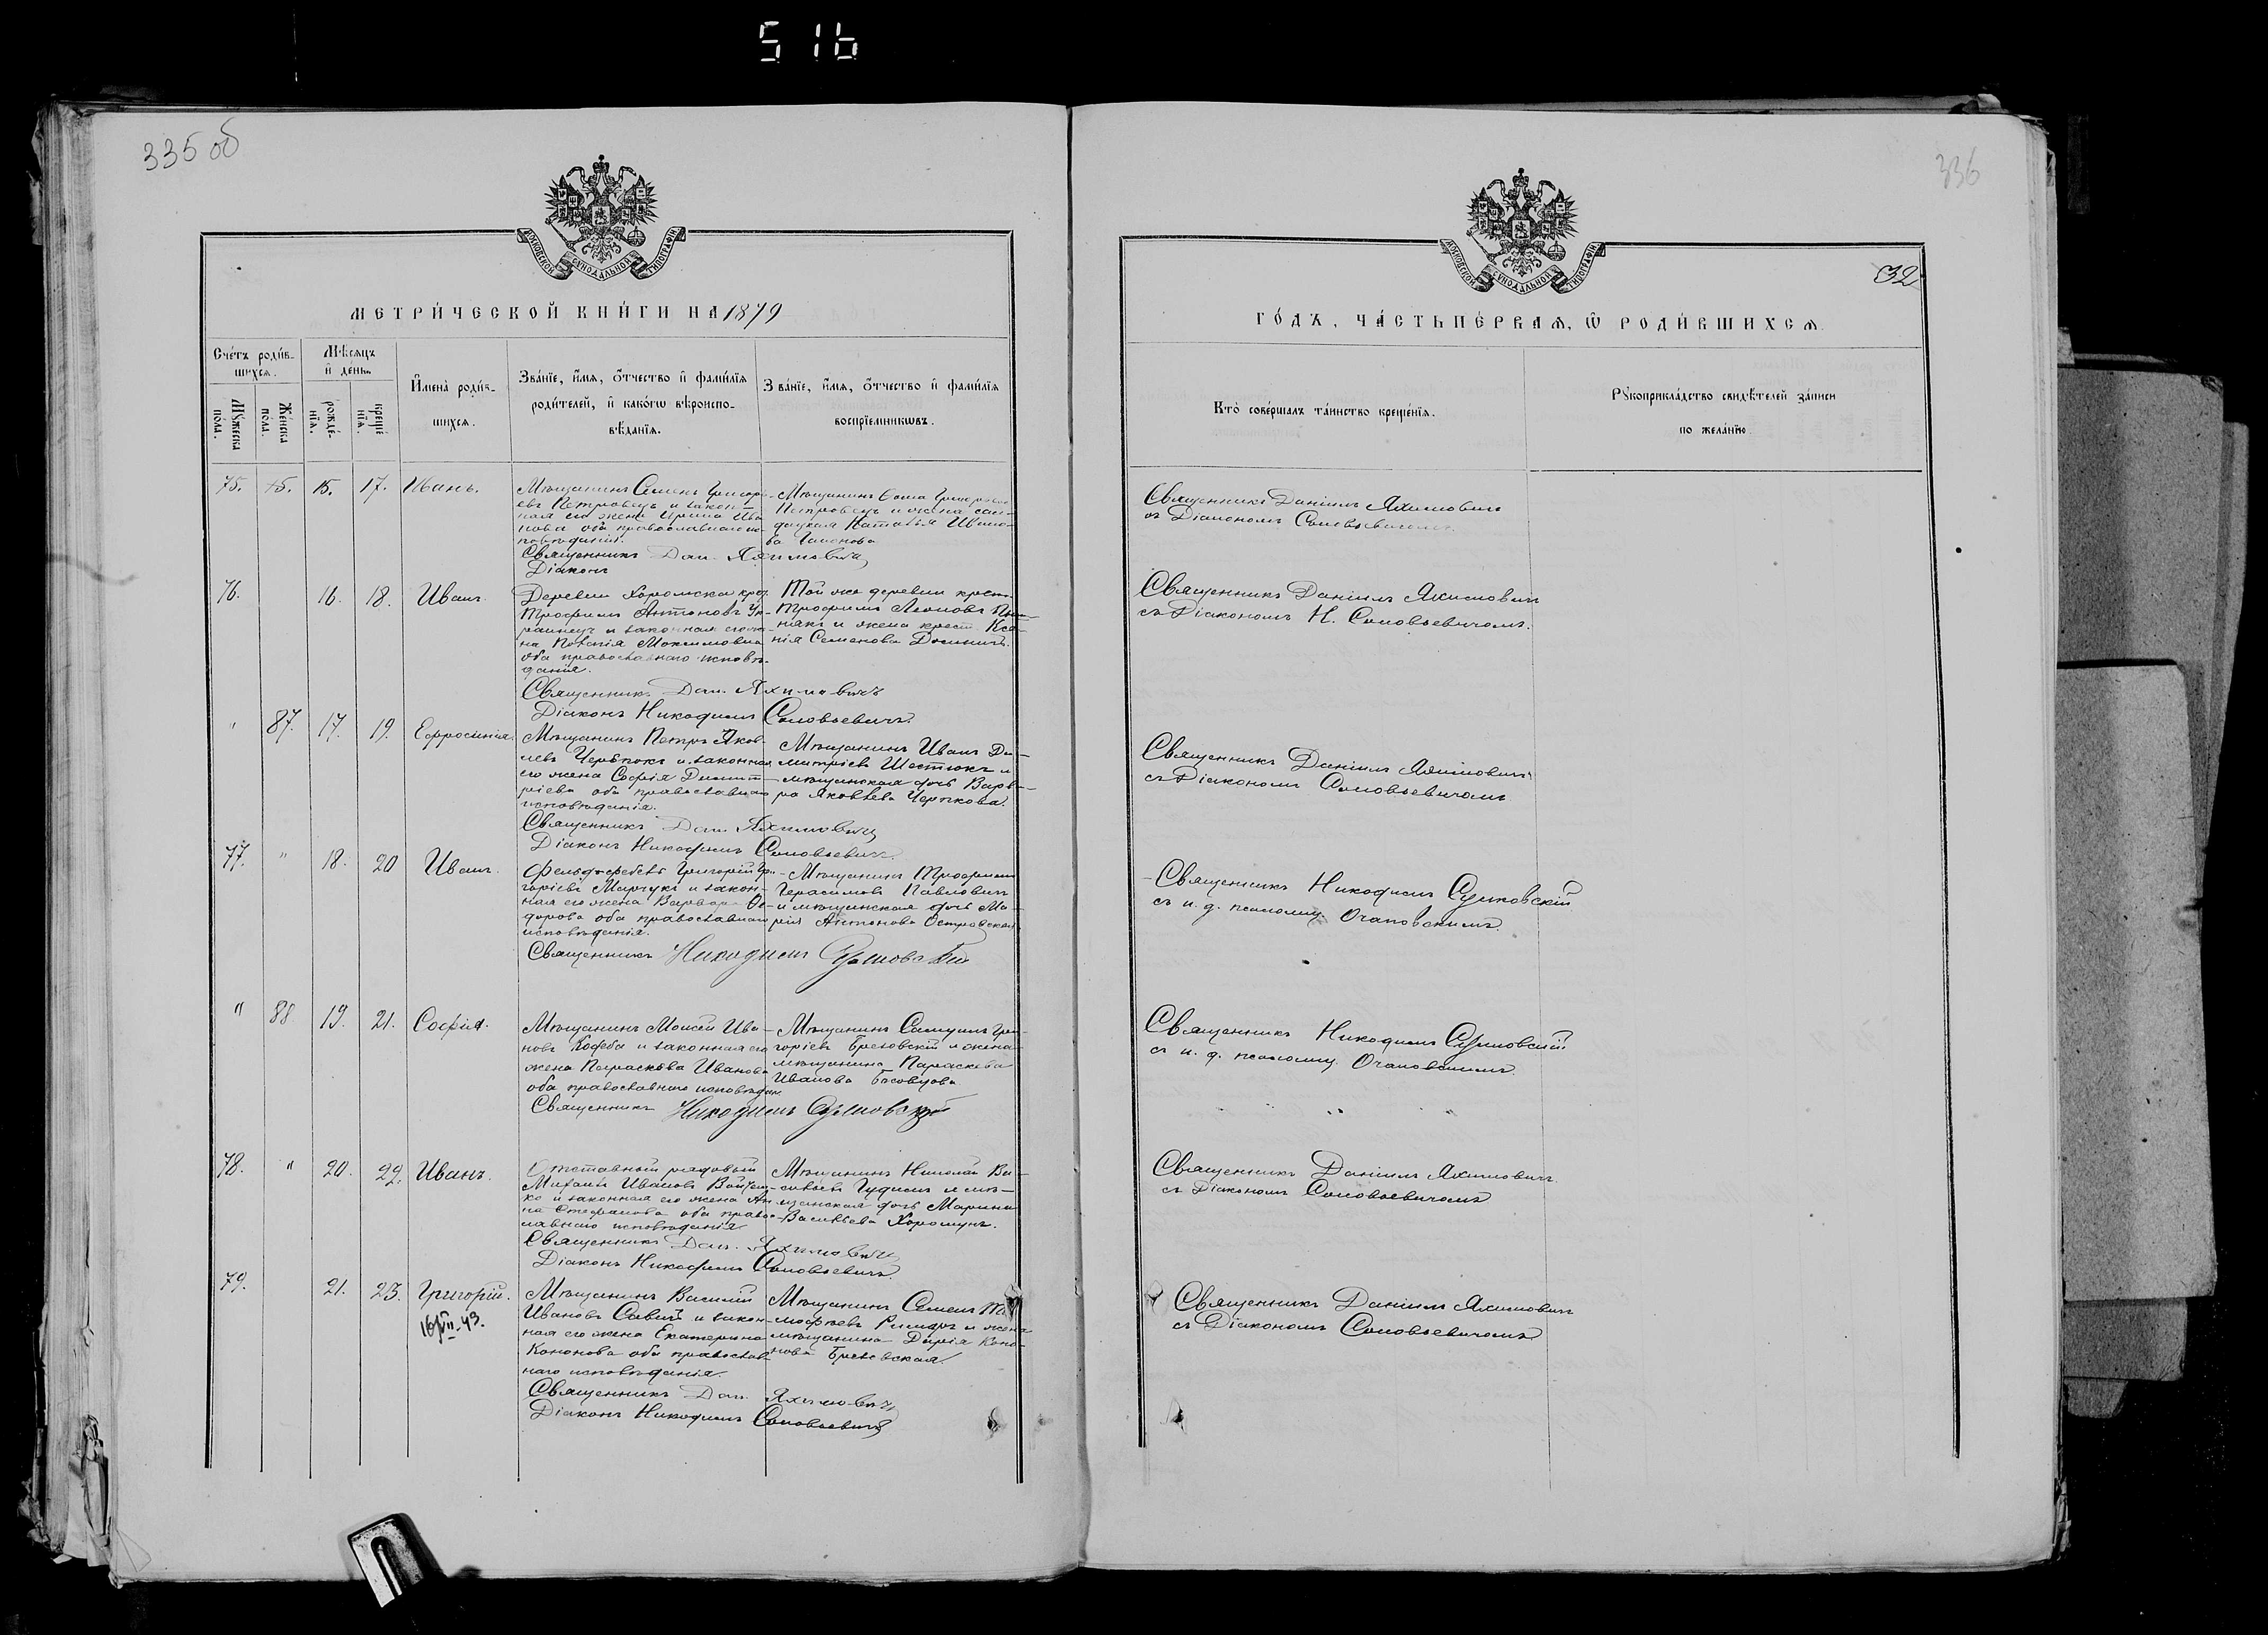 516
335 об
336
МОСКОВСКОЙ СУНОДАЛЬНОЙ ТИПОГРАФІИ
МОСКОВСКОЙ СУНОДАЛЬНОЙ ТИПОГРАФІИ
32
МЕТРИ́ЧЕСКОЙ КНИ́ГИ НА 1879
ГО́ДЪ, ЧА́СТЬ ПЕ́РВАЯ, Ѿ РОДИ́ВШИХСЯ.
Сче́тъ роди́в-
шихся.
Мꙋ́жеска по́ла.
Же́нска по́ла.
Мѣ́сяцъ
и҆ де́нь.
рожде́-
нїя.
креще́
нїя.
И҆мена̀ роди́в-
шихся.
Зва́нїе, и҆́мя, ѻ҆́тчество и҆ фами́лїя
роди́телей, и҆ како́гѡ вѣроиспо-
вѣ́данїя.
Зва́нїе, и҆́мя, ѻ҆́тчество и҆ фами́лїя
воспрїе́мникѡвъ.
Кто̀ соверша́лъ та́инство креще́нїя.
Рꙋкоприкла́дство свидѣ́телей за́писи
по жела́нїю.
75. 15. 17. Иванъ.
Мѣщанинъ Семенъ Григорі-
евъ Петровецъ и закон-
ная его жена Ирина Ива
нова оба православнаго ис
повѣданія.
Священникъ Дан. Яхимовичъ
Діаконъ
Петровецъ и жена
Наталья Ивано-
ва
Священникъ Даніилъ Яхимовичъ
съ Діакономъ Соловьевичемъ.
76. 16. 18. Иванъ.
Деревни Хоромска крес.
Трофимъ Антоновъ Ук-
раинецъ и законная его же-
на Максимовна
оба православнаго исповѣ-
данія.
Священникъ Дан. Яхимовичъ
Діаконъ Никодимъ Соловьевичъ.
Той же деревни крест.
Трофимъ Леоновъ
и жена крест. Ксе-
нія Семенова
Священникъ Даніилъ Яхимовичъ
съ Діакономъ Н. Соловьевичемъ.
" 87. 17. 19. Ефросинія.
Мѣщанинъ Петръ Яков-
левъ и законная
его жена Софія Димит-
ріева оба православнаго
исповѣданія.
Священникъ Дан. Яхимовичъ
Діаконъ Никодимъ Соловьевичъ.
Мѣщанинъ Иванъ Ди-
митріевъ Шестюкъ и
мѣщанская дочь Варва-
ра Яковлева
Священникъ Даніилъ Яхимовичъ
съ Діакономъ Соловьевичемъ
77. " 18. 20 Иванъ.
Фельдфебель Григорій Гри-
горіевъ Марчукъ и закон-
ная его жена Варвара Ѳе-
дорова оба православнаго
исповѣданія.
Священникъ Никодимъ
Мѣщанинъ Трофимъ
Герасимовъ Павловичъ
и мѣщанская дочь Ма-
рія Антонова Островская
Священникъ Никодимъ
съ и. д. псаломщ. Очаповскимъ.
" 88 19. 21. Софія.
Мѣщанинъ Моисей Ива-
новъ Кодеба и законная его
жена Параскева Иванова
оба православнаго исповѣдан.
Священникъ Никодимъ
Мѣщанинъ Самуилъ Гри-
горіевъ Брезовскій и жена
мѣщанина Параскева
Иванова Басовцова
Священникъ Никодимъ
съ и. д. псаломщ. Очаповскимъ.
78. " 20. 22. Иванъ.
Отставный рядовый
Михаилъ Ивановъ Войтен-
ко и законная его жена Ан
на Стефанова оба право-
лавнаго исповѣданія
Священникъ Дан. Яхимовичъ
Діаконъ Никодимъ Соловьевичъ.
Мѣщанинъ Николай Ва-
сильевъ и мѣ-
щанская дочь Марина
Васильева
Священникъ Даніилъ Яхимовичъ
съ Діакономъ Соловьевичемъ
79. 21. 23. Григорій.
16/VII-43.
Мѣщанинъ Василій
Ивановъ Савичъ и закон-
ная его жена Екатерина
Кононова оба православ-
наго исповѣданія.
Священникъ Дан. Яхимовичъ
Діаконъ Никодимъ Соловьевичъ
Мѣщанинъ Семенъ Ти
мофѣевъ Римаръ и жена
мѣщанина Дарія Коно-
нова Брезовская.
Священникъ Даніилъ Яхимовичъ
съ Діакономъ Соловьевичемъ